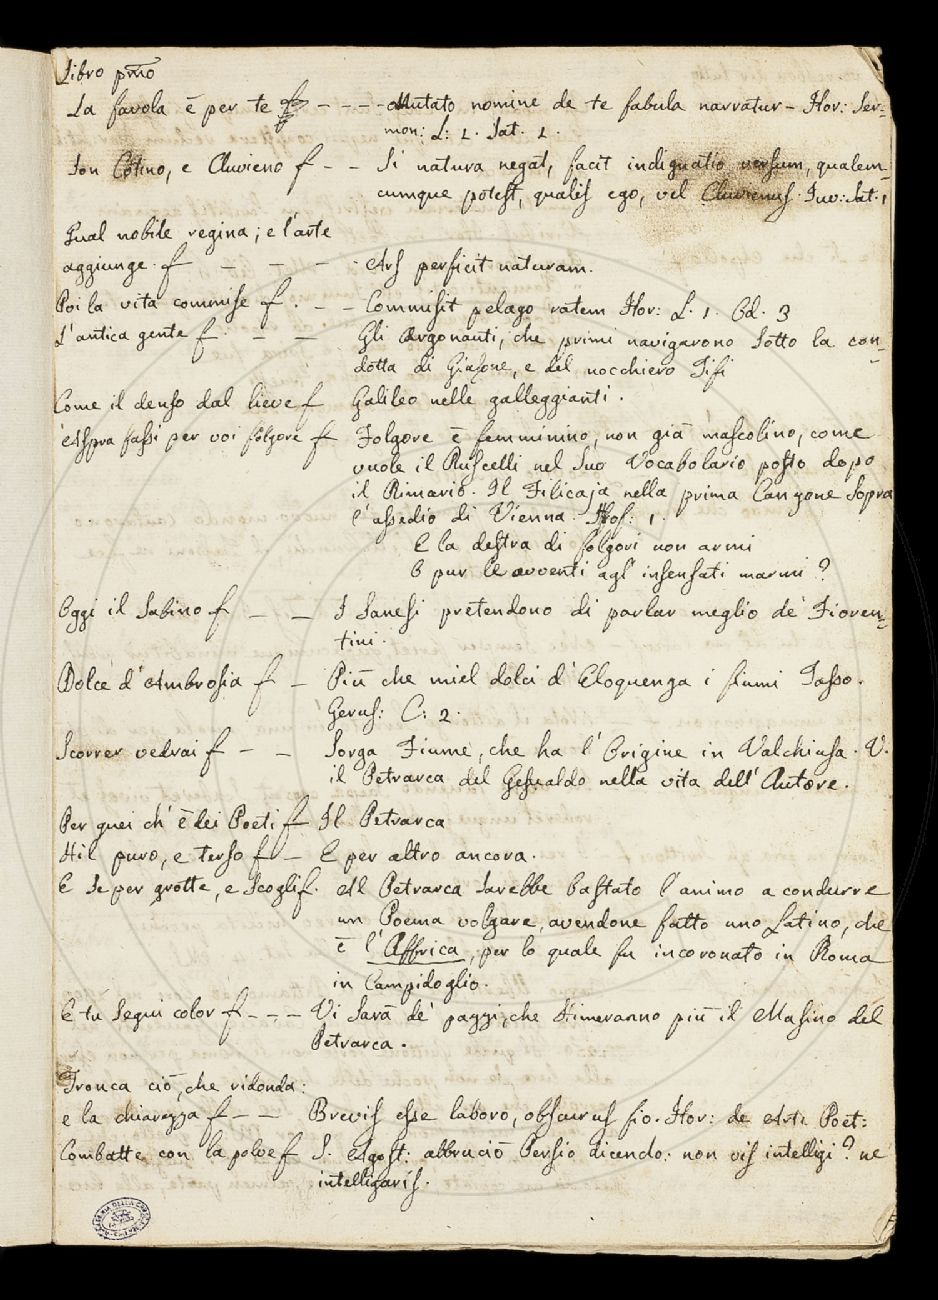 Libro pmo
La favola è per te f - - - - Mutato nomine de te fabula narratur - Hor: Ser=
mon: L: 1. Sat. 1.
Son Cotino, e Cluvieno f - - Si natura negat, facit indignatio versum, qualem=
cumque potest, qualis ego, vel Cluvienus. Iuv: Sat. 1
Qual nobile regina; e l'arte
aggiunge. f - - - - Ars perficit naturam.
Poi la vita commise f. - - Commisit pelago ratem Hor: L. 1. Od. 3
L'antica gente f. - - Gli Argonauti, che primi navigarono sotto la con=
dotta di Giasone, e del nocchiero Tifi
Come il denso dal lieve f Galileo nelle galleggianti.
Aspra fassi per voi folgore f Folgore è femminino, non già mascolino, come
vuole il Ruscelli nel suo Vocabolario posto dopo
il Rimario. Il Filicaja nella prima Canzone sopra
l'assedio di Vienna. Stof: 1.
E la destra di folgori non armi
O pur le avventi agl' insensati marmi?
Oggi il Sabino f - - I Sanesi pretendono di parlar meglio de' Fioren=
tini.
Dolce d'Ambrosia f - Più che miel dolci d'Eloquenza i fiumi Tasso.
Gerus: C: 2.
Scorrer vedrai f - - Sorga Fiume, che ha l'Origine in Valchiusa. V.
il Petrarca del Gesualdo nella vita dell'Autore.
Per quei ch'è dei Poeti f Il Petrarca
Stil puro, e terso f - E per altro ancora.
E se per grotte, e scogli f. Al Petrarca sarebbe bastato l'animo a condurre
un Poema volgare, avendone fatto uno Latino, che
è l'Affrica, per lo quale fu incoronato in Roma
in Campidoglio.
E tu segui color f - - - Vi sarà de' pazzi, che stimeranno più il Marino del
Petrarca.
Tronca ciò, che ridonda:
e la chiarezza f - - Brevis esse laboro, obscurus fio. Hor: de Art. Poet:
Combatte con la polve f S. Agost: abbruciò Persio dicendo: non vis intelligi? ne
intelligaris.